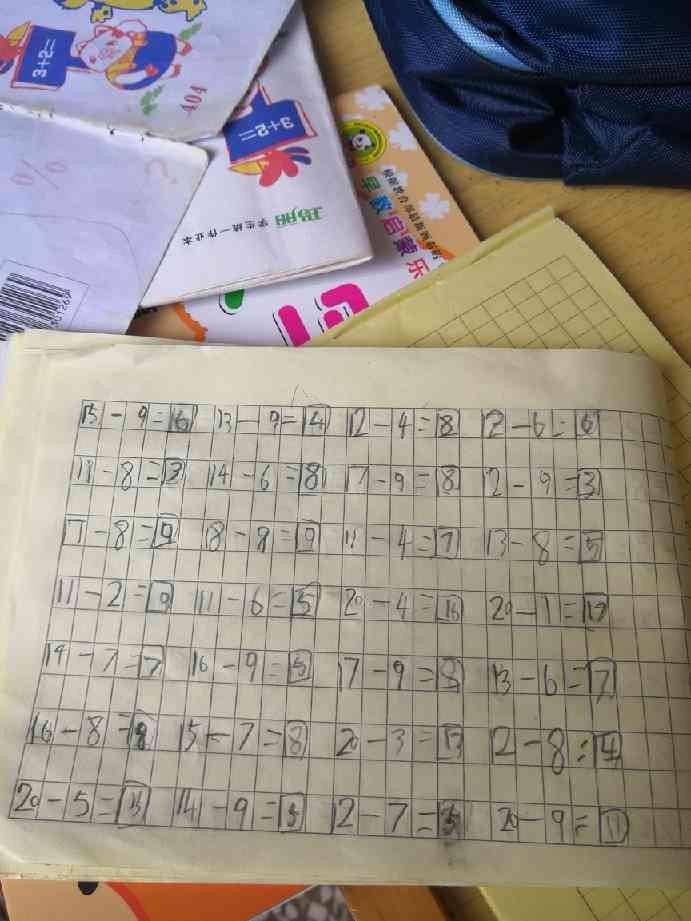 3+2=
404
3+2=
玛丽
学生统一作业本
早教启蒙乐
15-9=6 13-9=4 12-4=8 12-6=6
11-8=3 14-6=8 17-9=8 12-9=3
17-8=9 18-8=9 11-4=7 13-8=5
11-2=9 11-6=5 20-4=16 20-1=19
14-7=7 16-9=5 17-9=8 13-6=7
16-8=8 15-7=8 20-3=13 12-8=4
20-5=15 14-9=5 12-7=5 20-9=11